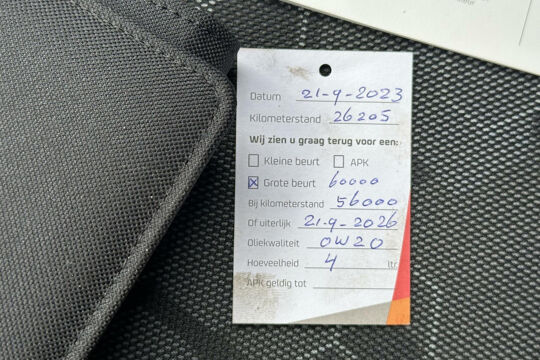 Datum 21-9-2023
Kilometerstand 26205
Wij zien u graag terug voor een:
Kleine beurt APK
Grote beurt 60000
Bij kilometerstand 56000
Of uiterlijk 21-9-2026
Oliekwaliteit 0W20
Hoeveelheid 4 ltr.
APK geldig tot